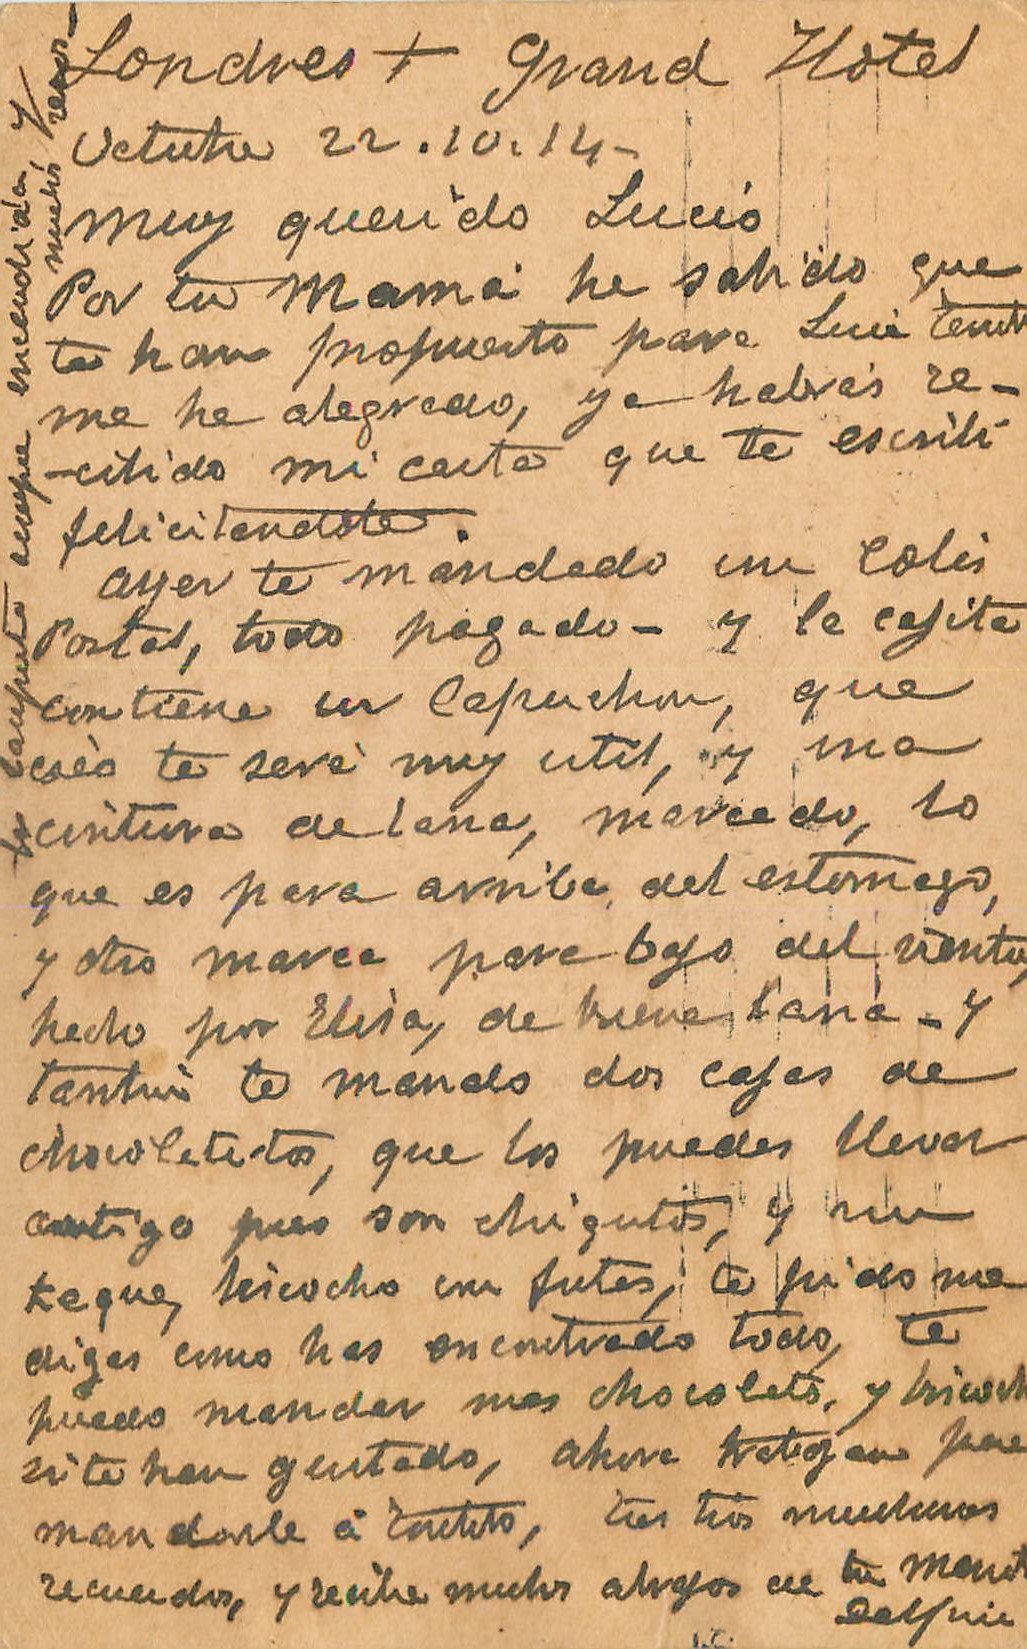 Londres + Grand Hotel
Octubre 22.10.14-
Muy querido Lucio
Por tu Mamá he sabido que
te han propuesto para Luie tenit
me he alegrado, ya habrás re-
-cibido mi carta que te escribí
felicitandote.
Ayer te mandado un Colis
Postal, todo pagado - y la cajita
contiene un Capuchon, que
creo te será muy util, y una
cintura de lana, marcado, lo
que es para arriba del estomago,
y otro marca para bajo del vientre,
hecho por Elisa, de buena lana - y
tambien te mando dos cajas de
chocolatitos, que los puedes llevar
contigo pues son chiquitos, y un
keque, bicocho con frutas, te pido me
digas como has encontrado todo, te
puedo mandar mas chocolats, y bicoch
si te han gustado, ahora trabajan para
mandarle á , tus tios muchisimos
recuerdos, y recibe muchos abrazos de tu Mamita
Delfina
La lamparita siempre encendida, y
muchos